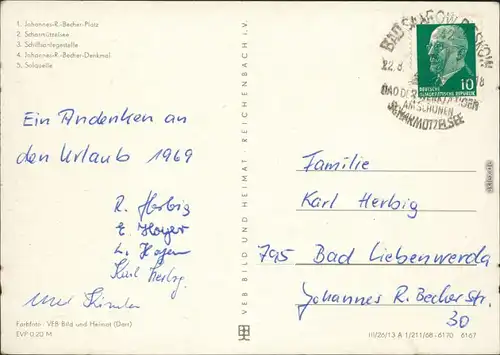 1. Johannes-R.-Becher-Platz
2. Scharmützelsee
3. Schiffsanlegestelle
4. Johannes-R.-Becher-Denkmal
5. Solquelle
Ein Andenken an
den Urlaub 1969
R. Herbig
E. Hoyer
Karl Herbig
Farbfoto: VEB Bild und Heimat (Darr)
EVP 0,20 M
VEB BILD UND HEIMAT · REICHENBACH i. V.
BAD SAAROW-PIESKOW
22.8.
18
BAD DER WERKTÄTIGEN
AM SCHÖNEN
SCHARMÜTZELSEE
10
DEUTSCHE
DEMOKRATISCHE REPUBLIK
Familie
Karl Herbig
795 Bad Liebenwerda
Johannes R. Becherstr.
30
III/26/13 A 1/211/68 · 6170 6167